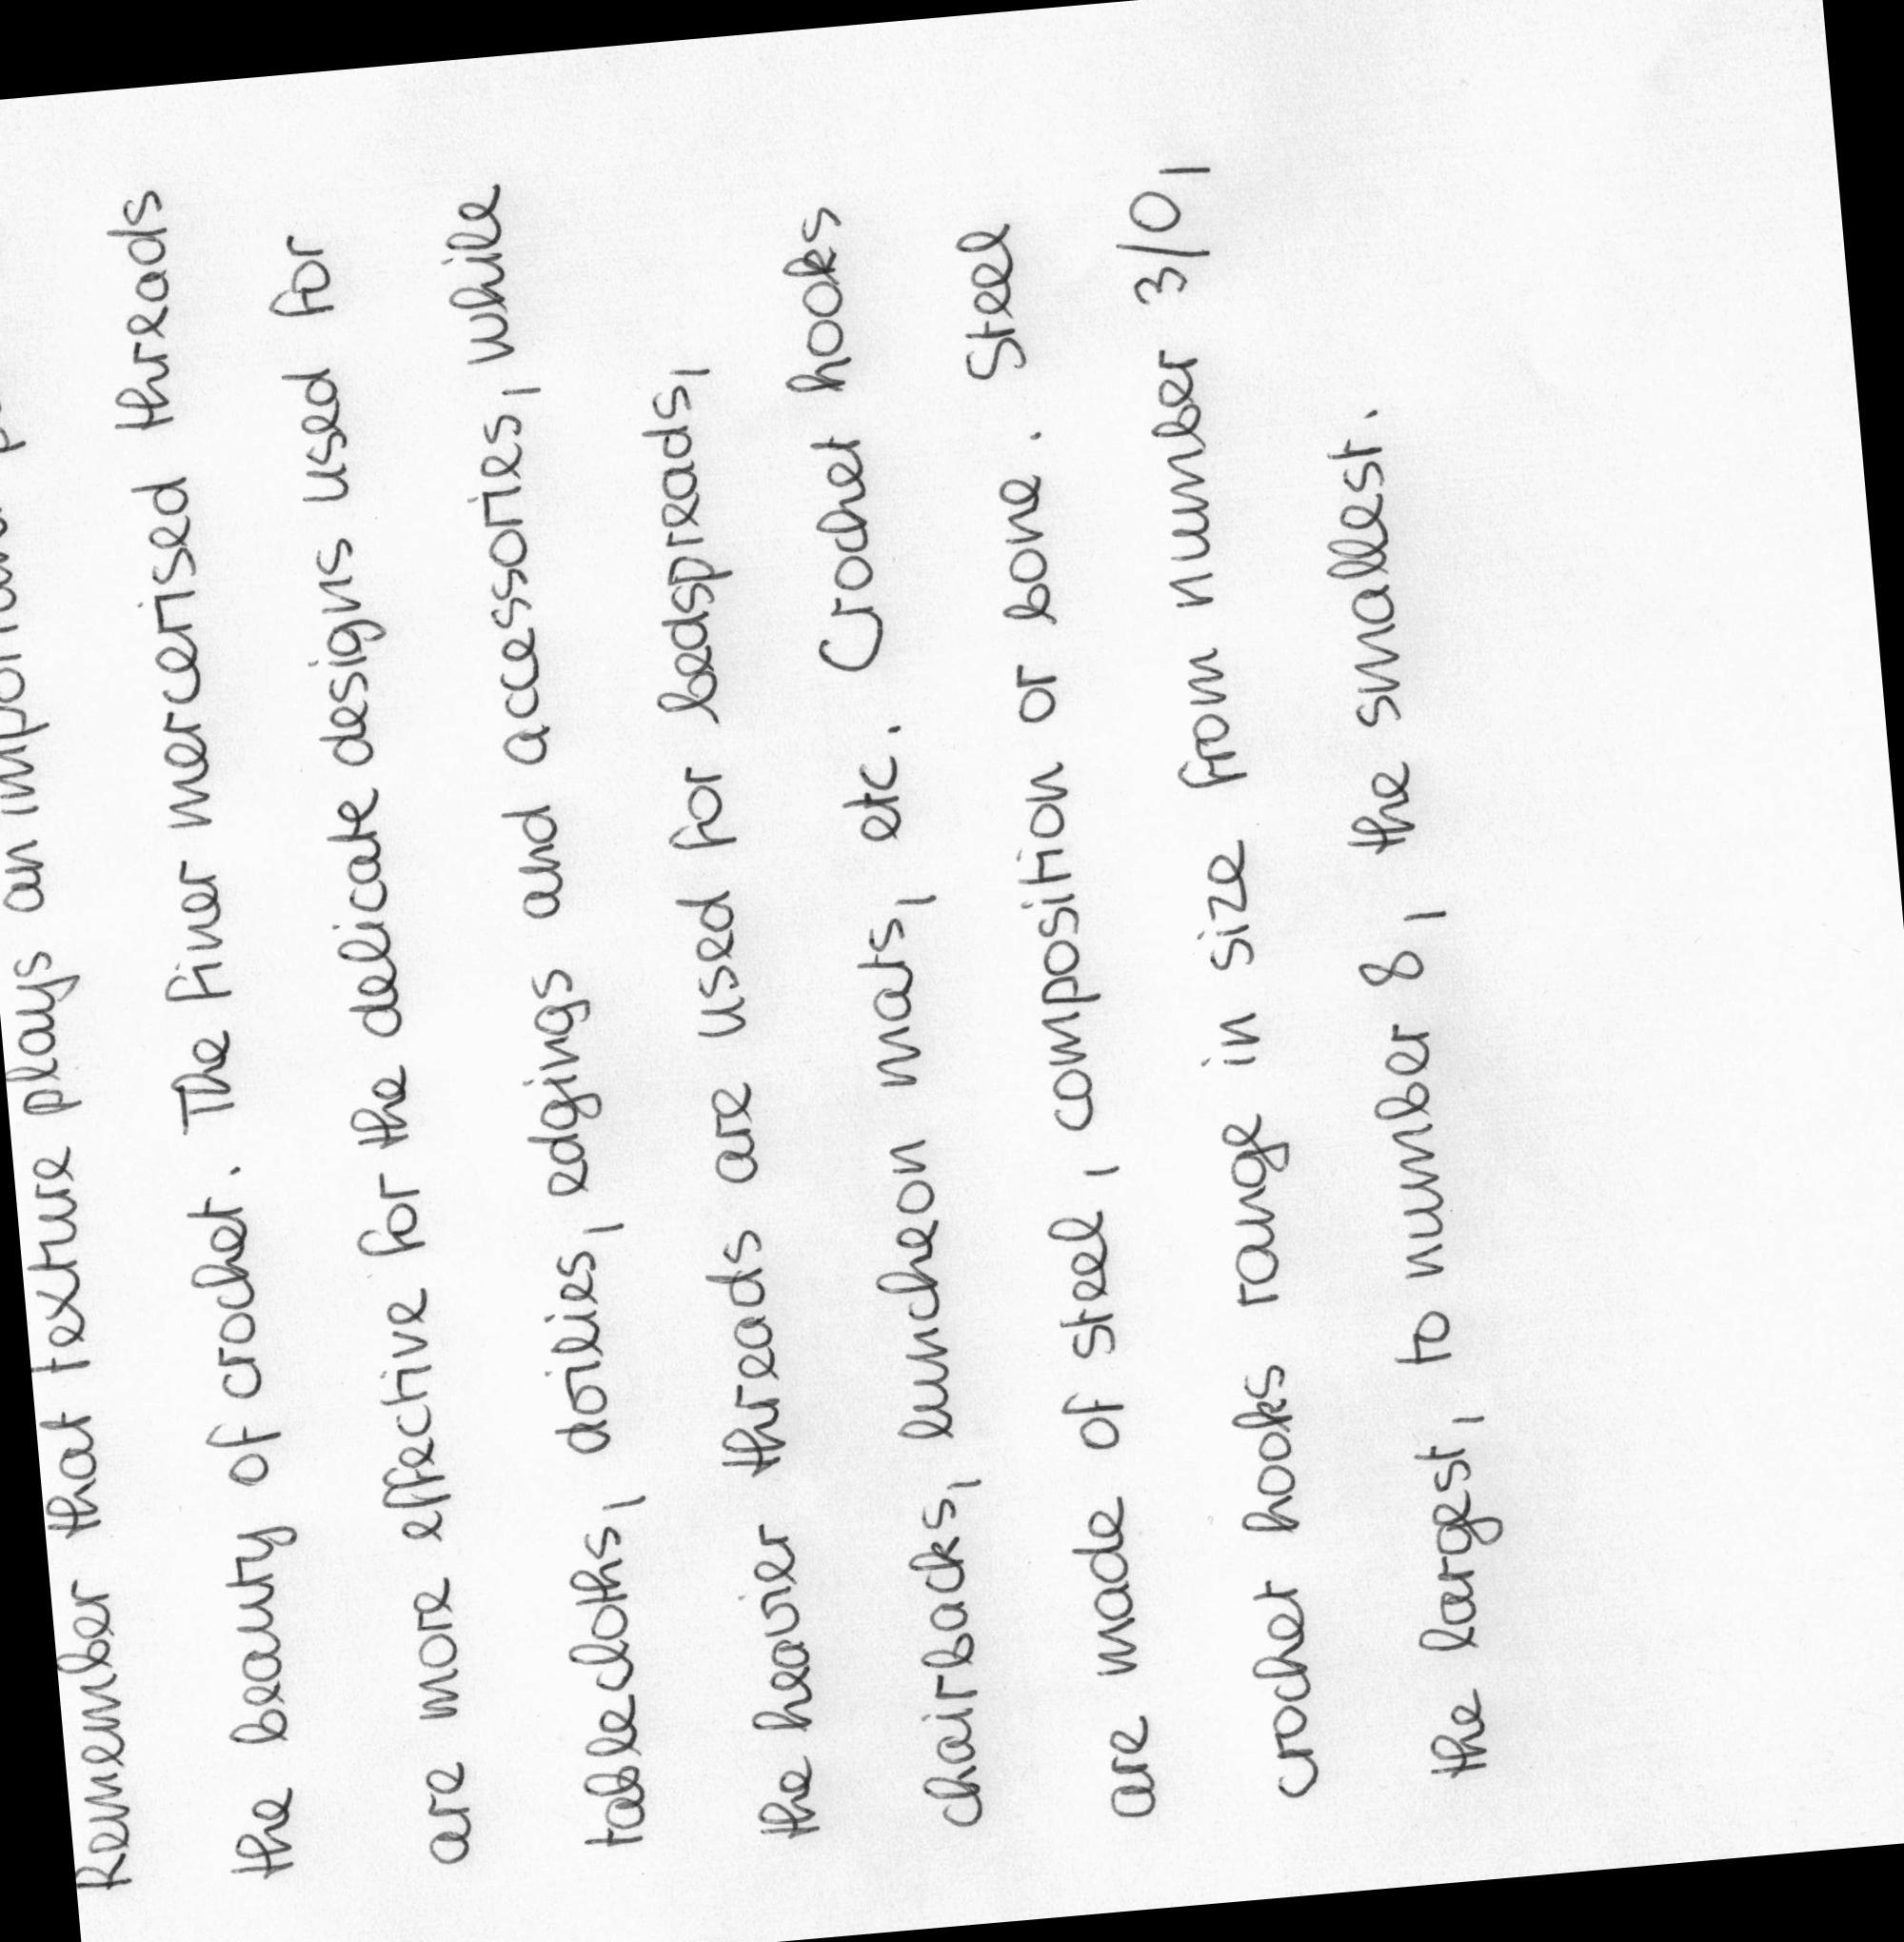 Remember that texture plays an important
the beauty of crochet. The finer mercerised threads
are more effective for the delicate designs used for
tablecloths, doilies, edgings and accessories, while
the heavier threads are used for bedspreads,
chairbacks, luncheon mats, etc. Crochet hooks
are made of steel, composition or bone. Steel
crochet hooks range in size from number 3/0,
the largest, to number 8, the smallest.